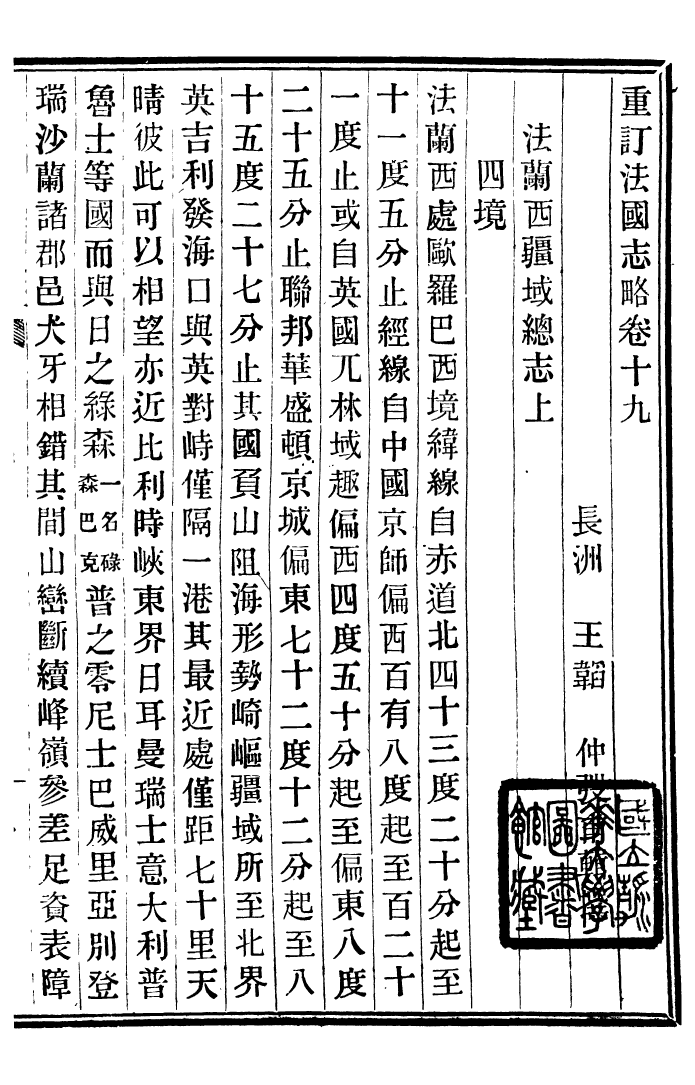 重訂法國志略卷十九
長洲 王韜 仲弢
法蘭西疆域總志上
四境
法蘭西處歐羅巴西境緯線自赤道北四十三度二十分起至
十一度五分止經線自中國京師偏西百有八度起至百二十
一度止或自英國兀林域趣偏西四度五十分起至偏東八度
二十五分止聯邦華盛頓京城偏東七十二度十二分起至八
十五度二十七分止其國負山阻海形勢崎嶇疆域所至北界
英吉利發海口與英對峙僅隔一港其最近處僅距七十里天
晴彼此可以相望亦近比利時峽東界日耳曼瑞士意大利普
魯士等國而與日之綠森一名碌森巴克普之零尼士巴威里亞別登
瑞沙蘭諸郡邑犬牙相錯其間山巒斷續峰嶺參差足資表障